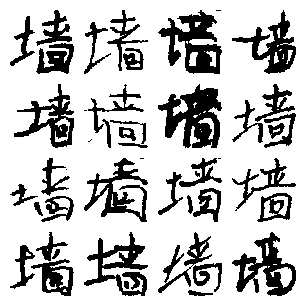 墙墙墙墙
墙墙墙墙
墙墙墙墙
墙墙墙墙